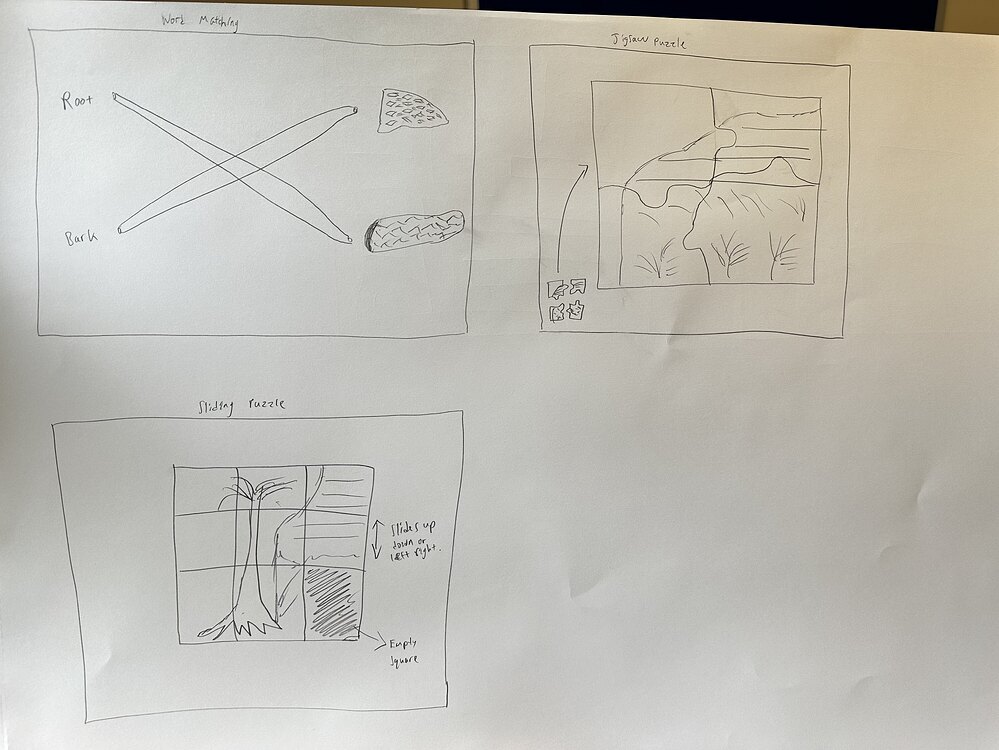 Work Matching
Root
Bark
Jigsaw Puzzle
Sliding Puzzle
Slides up
down or
left right.
Empty
Square